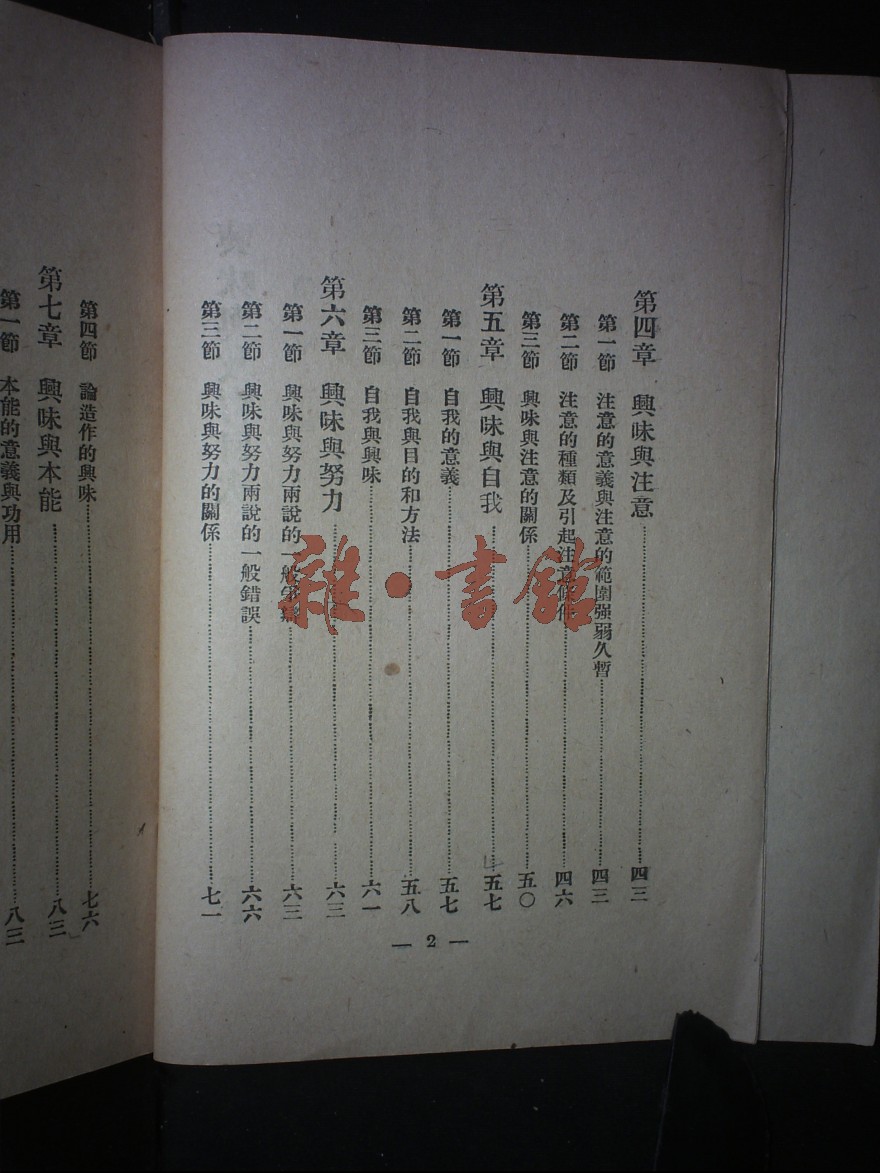 第四章 興味與注意……四三
第一節 注意的意義與注意的範圍强弱久暫……四三
第二節 注意的種類及引起注意條件……四六
第三節 興味與注意的關係……五〇
第五章 興味與自我……五七
第一節 自我的意義……五七
第二節 自我與目的和方法……五八
第三節 自我與興味……六一
第六章 興味與努力……六三
第一節 興味與努力兩說的一般……六三
第二節 興味與努力兩說的一般錯誤……六六
第三節 興味與努力的關係……七一
— 2 —
第四節 論造作的興味……七六
第七章 興味與本能……八三
第一節 本能的意義與功用……八三
雜·書館